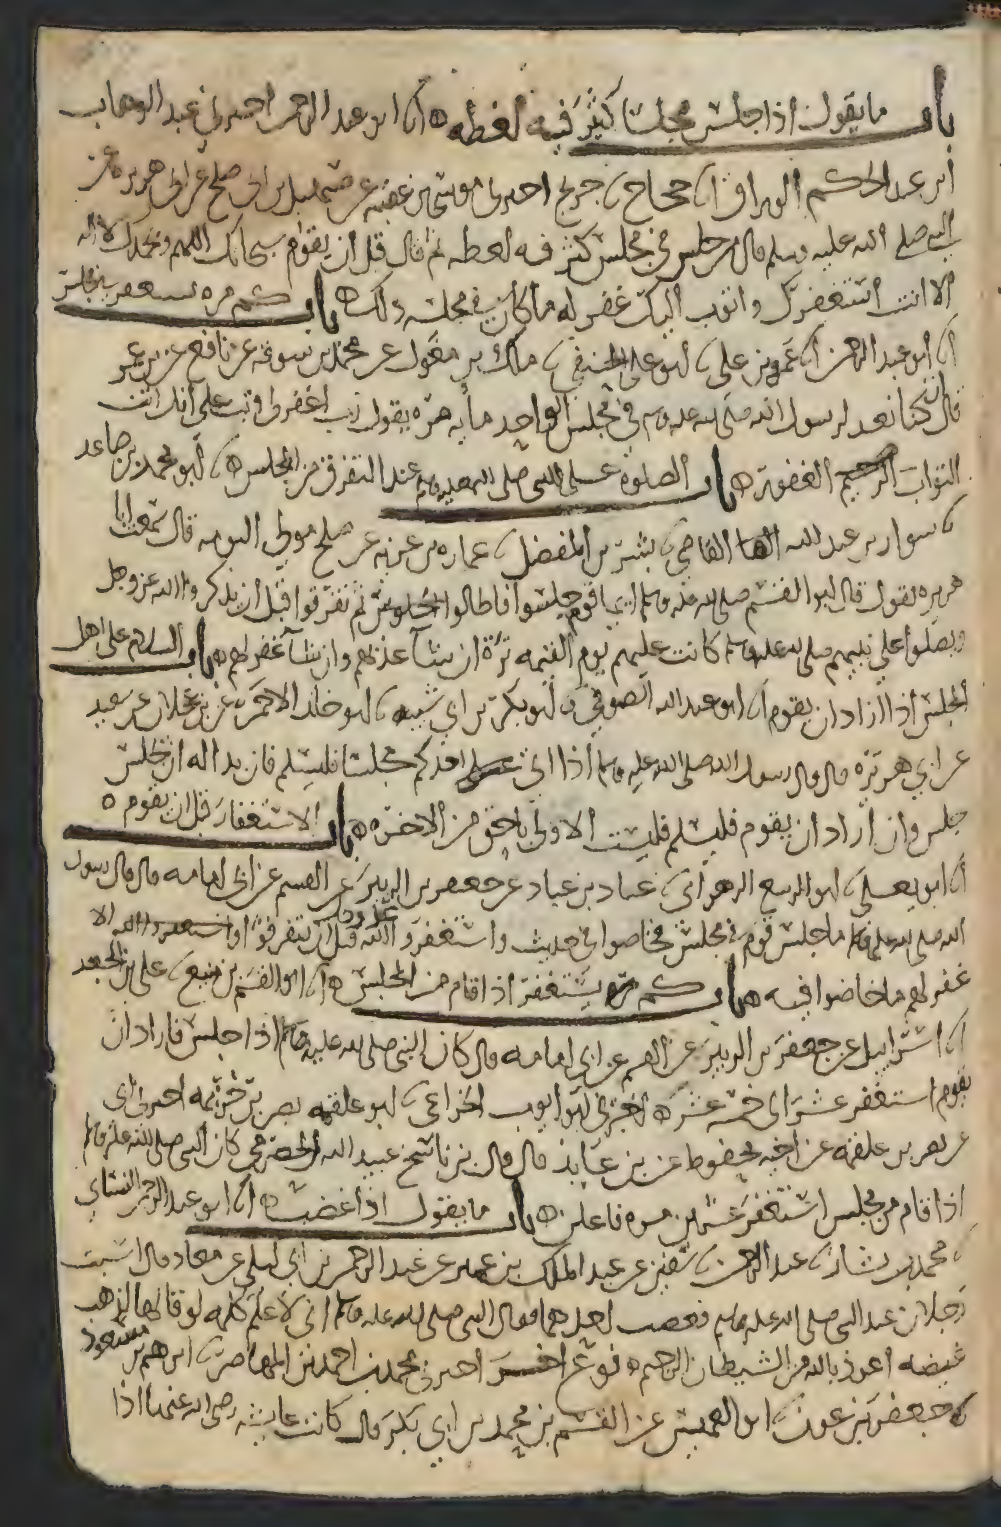 باب ما يقول اذا جلس مجلسا كثر فيه لغطه ه انا ابو عبد الرحمن اخبرني عبد الوهاب
ابن عبد الحكم الوراق انا حجاج ثنا جريج اخبرني موسى بن عقبه عن سهيل بن ابي صلح عن ابي هريره عن
النبي صلى الله عليه وسلم قال من جلس في مجلس كثر فيه لغطه ثم قال قبل ان يقوم سبحانك اللهم وبحمدك لا اله
الا انت استغفرك واتوب اليك غفر له ما كان في مجلسه ذلك ه باب كم مره يستغفر في مجلس
انا ابو عبد الرحمن انا عمرو بن علي ثنا ابو علي الحنفي ثنا مالك بن مغول عن محمد بن سوقه عن نافع عن بن عمر
قال كنا نعد لرسول الله صلى الله عليه وسلم في مجلس الواحد مايه مره يقول رب اغفر لي وتب علي انك انت
التواب الرحيم الغفور ه باب الصلوه على النبي صلى الله عليه وسلم عند التفرق من المجلس ه ثنا ابو محمد بن صاعد
ثنا سوار بن عبد الله القاضي ثنا بشر بن المفضل ثنا عماره بن غزيه عن صلح مولى التومه قال سمعت ابا
هريره يقول قال ابو القسم صلى الله عليه وسلم ايما قوم جلسوا فاطالوا الجلوس ثم تفرقوا قبل ان يذكروا الله عز وجل
ويصلوا على نبيهم صلى الله عليه وسلم كانت عليهم يوم القيمه تره ان شآ عذبهم وان شآ غفر لهم ه باب السلام على اهل
المجلس اذا اراد ان يقوم انا ابو عبد الله الصوفي ثنا ابو بكر بن ابي شيبه ثنا ابو خالد الاحمر عن بن عجلان عن سعيد
عن ابي هريره قال قال رسول الله صلى الله عليه وسلم اذا اتى احدكم مجلسا فليسلم فان بدا له ان يجلس
جلس وان اراد ان يقوم فليسلم فليست الاولى باحق من الاخره ه باب الاستغفار قبل ان يقوم ه
انا ابو يعلى ثنا ابو الربيع الزهراني ثنا عباد بن عباد عن جعفر بن الزبير عن القسم عن ابي امامه قال قال رسول
الله صلى الله عليه وسلم ما جلس قوم في مجلس فخاضوا في حديث واستغفروا الله عز وجل قبل ان يتفرقوا الا
غفر لهم ما خاضوا فيه ه باب كم مره يستغفر اذا قام من المجلس ه انا ابو القسم بن منيع ثنا علي بن الجعد
انا اسرائيل عن جعفر بن الزبير عن القسم عن ابي امامه قال كان النبي صلى الله عليه وسلم اذا جلس فاراد ان
يقوم استغفر عشرا الى خمسه عشر ه اخبرني ابو ايوب الخزاعي ثنا ابو علقمه نصر بن خزيمه اخبرني ابي
عن نصر بن علقمه عن اخيه محفوظ عن بن عايذ قال قال بن ناسخ عبيد الله الحضرمي كان النبي صلى الله عليه وسلم
اذا قام من مجلس استغفر عشرين مره فاعلن ه باب ما يقول اذا غضب ه انا ابو عبد الرحمن النسائي
ثنا محمد بن بشار ثنا عبد الرحمن ثنا سفين عن عبد الملك بن عمير عن عبد الرحمن بن ابي ليلى عن معاذ قال استبت
رجلان عند النبي صلى الله عليه وسلم فغضب احدهما فقال النبي صلى الله عليه وسلم اني لاعلم كلمه لو قالها لذهب
غيضه اعوذ بالله من الشيطان الرجيم ه نوع اخر اخبرني محمد بن احمد بن المهاصر ثنا ابرهيم بن مسعود
ثنا جعفر بن عون ثنا ابو العميس عن القسم بن محمد بن ابي بكر قال كانت عايشه رضي الله عنها اذا